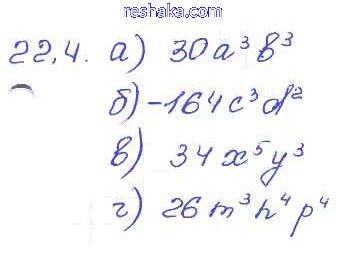 reshaka.com
22.4. а) 30a³b³
б) -164c³d²
в) 34x⁵y³
г) 26m³n⁴p⁴